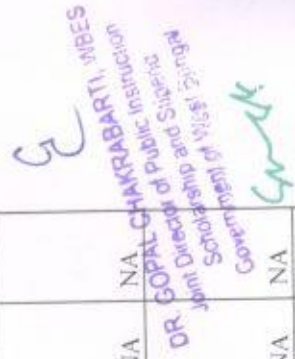 DR. GOPAL CHAKRABARTI, WBES
Joint Director of Public Instruction
Scholarship and Stipend
Government of West Bengal
NA
NA
NA
NA